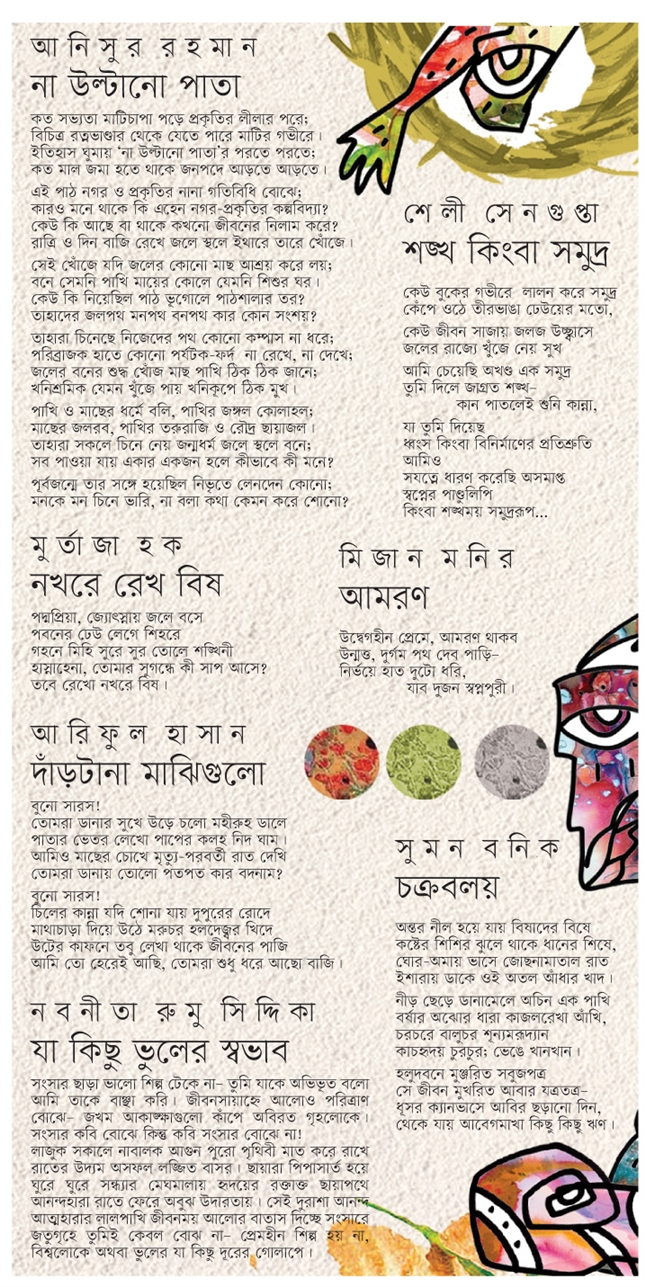 আনিসুর রহমান
না উল্টানো পাতা
কত সভ্যতা মাটিচাপা পড়ে প্রকৃতির লীলার পরে;
বিচিত্র রত্নভাণ্ডার থেকে যেতে পারে মাটির গভীরে।
ইতিহাস ঘুমায় ‘না উল্টানো পাতা’র পরতে পরতে;
কত মাল জমা হতে থাকে জনপদে আড়তে আড়তে।
এই পাঠ নগর ও প্রকৃতির নানা গতিবিধি বোঝে;
কারও মনে থাকে কি এহেন নগর-প্রকৃতির কল্পবিদ্যা?
কেউ কি আছে বা থাকে কখনো জীবনের নিলাম করে?
রাত্রি ও দিন বাজি রেখে জলে স্থলে ইথারে তারে খোঁজে।
সেই খোঁজে যদি জলের কোনো মাছ আশ্রয় করে লয়;
বনে সেমনি পাখি মায়ের কোলে যেমনি শিশুর ঘর।
কেউ কি নিয়েছিল পাঠ ভূগোলে পাঠশালার তর?
তাহাদের জলপথ মনপথ বনপথ কার কোন সংশয়?
তাহারা চিনেছে নিজেদের পথ কোনো কম্পাস না ধরে;
পরিব্রাজক হাতে কোনো পর্যটক-ফর্দ না রেখে, না দেখে;
জলের বনের শুদ্ধ খোঁজ মাছ পাখি ঠিক ঠিক জানে;
খনিশ্রমিক যেমন খুঁজে পায় খনিকূপে ঠিক মুখ।
পাখি ও মাছের ধর্মে বলি, পাখির জঙ্গল কোলাহল;
মাছের জলরব, পাখির তরুরাজি ও রৌদ্র ছায়াজল।
তাহারা সকলে চিনে নেয় জন্মধর্ম জলে স্থলে বনে;
সব পাওয়া যায় একার একজন হলে কীভাবে কী মনে?
পূর্বজন্মে তার সঙ্গে হয়েছিল নিভৃতে লেনদেন কোনো;
মনকে মন চিনে ভারি, না বলা কথা কেমন করে শোনো?
শেলী সেনগুপ্তা
শঙ্খ কিংবা সমুদ্র
কেউ বুকের গভীরে লালন করে সমুদ্র
কেঁপে ওঠে তীরভাঙা ঢেউয়ের মতো,
কেউ জীবন সাজায় জলজ উচ্ছ্বাসে
জলের রাজ্যে খুঁজে নেয় সুখ
আমি চেয়েছি অখণ্ড এক সমুদ্র
তুমি দিলে জাগ্রত শঙ্খ–
কান পাতলেই শুনি কান্না,
যা তুমি দিয়েছ
ধ্বংস কিংবা বিনির্মাণের প্রতিশ্রুতি
আমিও
সযত্নে ধারণ করেছি অসমাপ্ত
স্বপ্নের পাণ্ডুলিপি
কিংবা শঙ্খময় সমুদ্ররূপ...
মুর্তাজা হক
নখরে রেখ বিষ
পদ্মপ্রিয়া, জ্যোৎস্নায় জলে বসে
পবনের ঢেউ লেগে শিহরে
গহনে মিহি সুরে সুর তোলে শঙ্খিনী
হাস্নাহেনা, তোমার সুগন্ধে কী সাপ আসে?
তবে রেখো নখরে বিষ।
মিজান মনির
আমরণ
উদ্বেগহীন প্রেমে, আমরণ থাকব
উন্মত্ত, দুর্গম পথ দেব পাড়ি–
নির্ভয়ে হাত দুটো ধরি,
যাব দুজন স্বপ্নপুরী।
আরিফুল হাসান
দাঁড়টানা মাঝিগুলো
বুনো সারস!
তোমরা ডানার সুখে উড়ে চলো মহীরুহ ডালে
পাতার ভেতর লেখো পাপের কলহ নিদ ঘাম।
আমিও মাছের চোখে মৃত্যু-পরবর্তী রাত দেখি
তোমরা ডানায় তোলো পতপত কার বদনাম?
বুনো সারস!
চিলের কান্না যদি শোনা যায় দুপুরের রোদে
মাথাচাড়া দিয়ে উঠে মরুচর হলদেত্বর খিদে
উটের কাফনে তবু লেখা থাকে জীবনের পাজি
আমি তো হেরেই আছি, তোমরা শুধু ধরে আছো বাজি।
সুমন বনিক
চক্রবলয়
অন্তর নীল হয়ে যায় বিষাদের বিষে
কষ্টের শিশির ঝুলে থাকে ধানের শিষে,
ঘোর-অমায় ভাসে জোছনামাতাল রাত
ইশারায় ডাকে ওই অতল আঁধার খাদ।
নীড় ছেড়ে ডানামেলে অচিন এক পাখি
বর্ষার অঝোর ধারা কাজলরেখা আঁখি,
চরচরে বালুচর শূন্যমরূদ্যান
কাচহৃদয় চুরচুর; ভেঙে খানখান।
হলুদবনে মুঞ্জরিত সবুজপত্র
সে জীবন মুখরিত আবার যত্রতত্র–
ধূসর ক্যানভাসে আবির ছড়ানো দিন,
থেকে যায় আবেগমাখা কিছু কিছু ঋণ।
নবনীতা রুমু সিদ্দিকা
যা কিছু ভুলের স্বভাব
সংসার ছাড়া ভালো শিল্প টেকে না– তুমি যাকে অভিভূত বলো
আমি তাকে বাঞ্ছা করি। জীবনসায়াহ্নে আলোও পরিত্রাণ
বোঝে– জখম আকাঙ্ক্ষাগুলো কাঁপে অবিরত গৃহলোকে।
সংসার কবি বোঝে কিন্তু কবি সংসার বোঝে না!
লাজুক সকালে নাবালক আগুন পুরো পৃথিবী মাত করে রাখে
রাতের উদ্যম অসফল লজ্জিত বাসর। ছায়ারা পিপাসার্ত হয়ে
ঘুরে ঘুরে সন্ধ্যার মেঘমালায় হৃদয়ের রক্তাক্ত ছায়াপথে
আনন্দহারা রাতে ফেরে অবুঝ উদারতায়। সেই দুরাশা আনন্দ
আত্মহারার লালপাখি জীবনময় আলোর বাতাস দিচ্ছে সংসারে
জতুগৃহে তুমিই কেবল বোঝ না– প্রেমহীন শিল্প হয় না,
বিশ্বলোকে অথবা ভুলের যা কিছু দূরের গোলাপে।